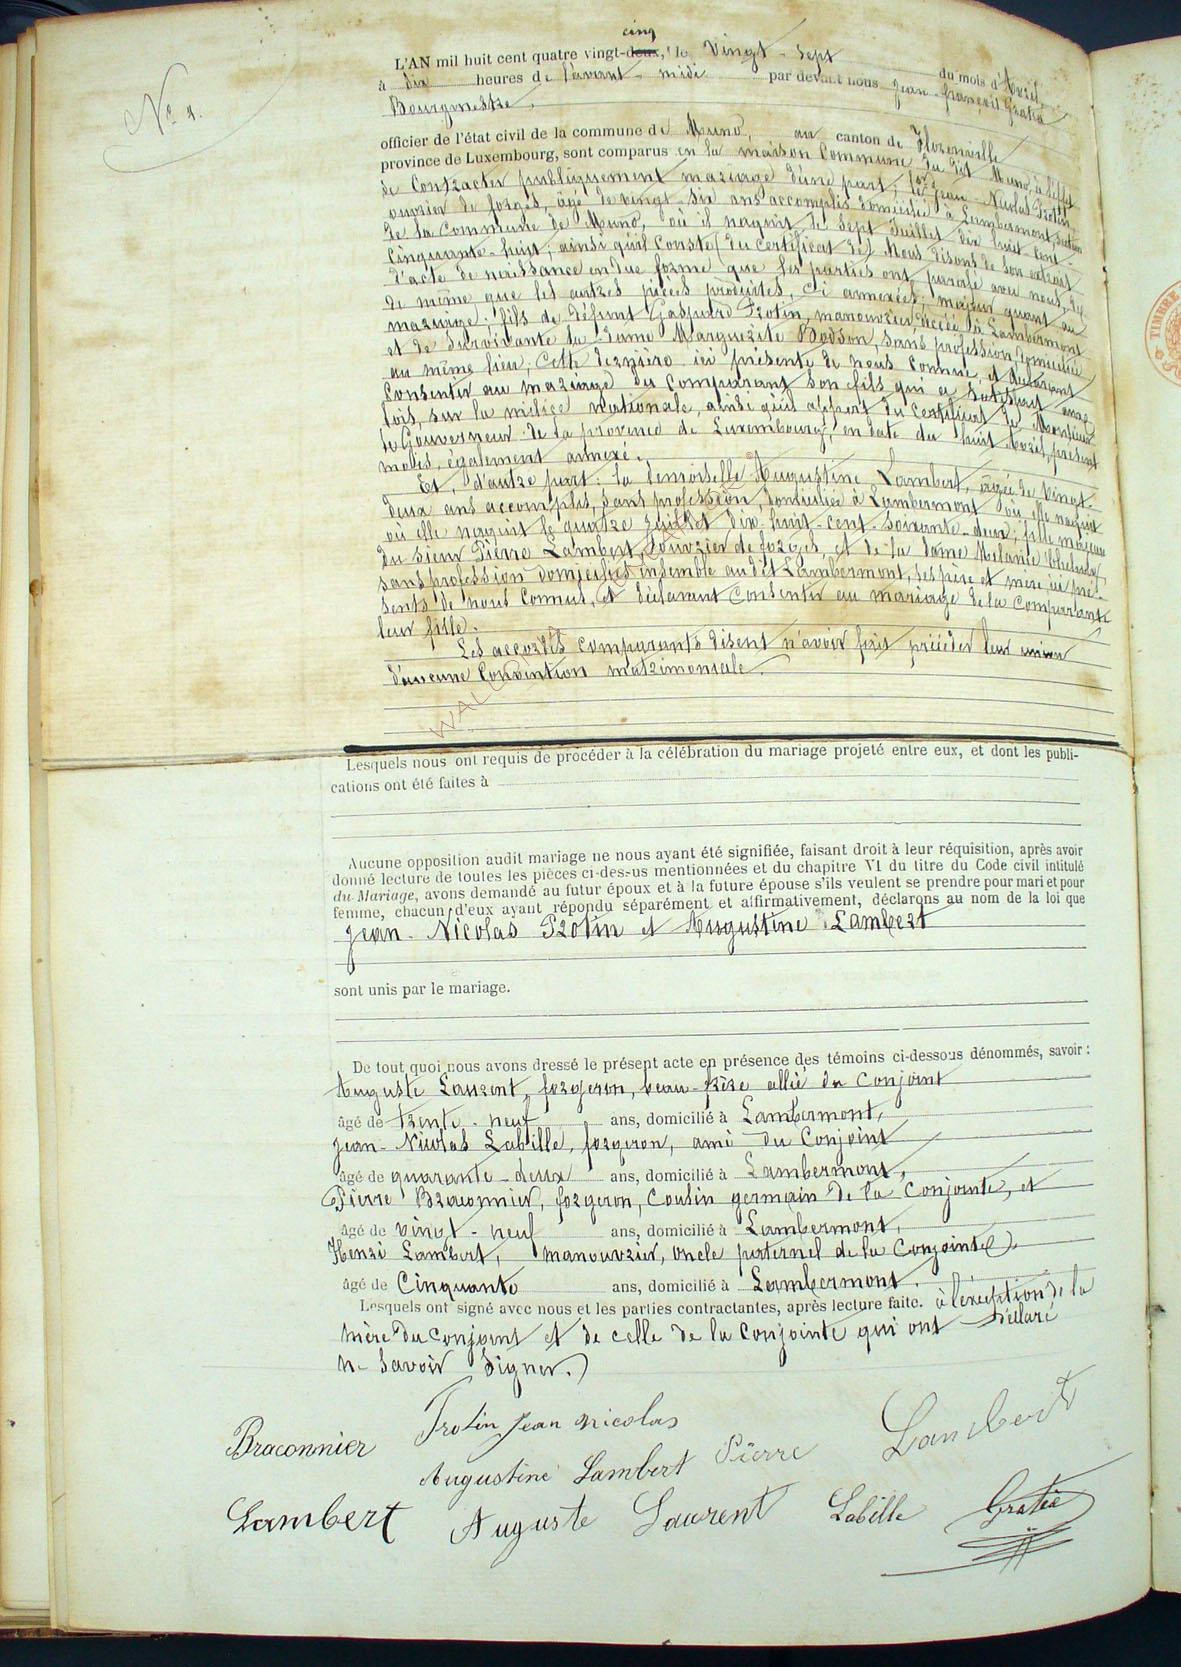 N° 4.
cinq
L'AN mil huit cent quatre vingt-deux, le Vingt-Sept du mois d'Avril,
à dix heures de l'avant-midi par devant nous Jean-François Gratia
Bourgmestre,
officier de l'état civil de la commune de Muno, au canton de Florenville
province de Luxembourg, sont comparus en la maison Commune du dit Muno, à l'effet
de Contracter publiquement mariage d'une part; le sr Jean-Nicolas Trotin
ouvrier de forges, âgé de vingt-six ans accomplis domicilié à Lambermont, section
de la Commune de Muno, où il naquit le Sept Juillet dix huit-cent-
cinquante-huit; ainsi qu'il Conste (du certificat de) Nous disons de son extrait
d'acte de naissance en due forme que les parties ont paraphé avec nous,
de même que les autres pièces produites, ci annexées; majeur quant au
mariage; fils de défunt Gaspard Trotin, manouvrier décédé à Lambermont
et de Survivante la Dame Marguerite Bodson, sans profession domiciliée
au même lieu; Cette dernière ici présente de nous Connue et déclarant
Consentir au mariage du Comparant son fils qui a satisfait aux
lois, sur la milice Nationale, ainsi qu'il appert du certificat de Monsieur
le Gouverneur de la province de Luxembourg, en date du huit Avril, présent
mois, également annexé.
Et, d'autre part: la demoiselle Augustine Lambert, âgée de Vingt-
deux ans accomplis, sans profession, domiciliée à Lambermont où elle naquit
où elle naquit le quatre Juillet dix-huit-cent-soixante-deux; fille majeure
du sieur Pierre Lambert, ouvrier de forges, et de la dame Mélanie
sans profession domiciliés ensemble au dit Lambermont, ses père et mère, ici pré-
sents de nous Connus, et déclarant Consentir au mariage de la Comparante
leur fille.
Les accordés Comparants disent n'avoir fait précéder leur union
d'aucune Convention matrimoniale.
Lesquels nous ont requis de procéder à la célébration du mariage projeté entre eux, et dont les publi-
cations ont été faites à
Aucune opposition audit mariage ne nous ayant été signifiée, faisant droit à leur réquisition, après avoir
donné lecture de toutes les pièces ci-dessus mentionnées et du chapitre VI du titre du Code civil intitulé
du Mariage, avons demandé au futur époux et à la future épouse s'ils veulent se prendre pour mari et pour
femme, chacun d'eux ayant répondu séparément et affirmativement, déclarons au nom de la loi que
Jean-Nicolas Trotin et Augustine Lambert
sont unis par le mariage.
De tout quoi nous avons dressé le présent acte en présence des témoins ci-dessous dénommés, savoir:
Auguste Laurent, forgeron, beau-frère allié du Conjoint
âgé de trente-neuf ans, domicilié à Lambermont,
Jean-Nicolas Labille, forgeron, ami du Conjoint
âgé de quarante-deux ans, domicilié à Lambermont,
Pierre Braconnier, forgeron, Cousin germain de la Conjointe, et
âgé de vingt-neuf ans, domicilié à Lambermont,
Henri Lambert, manouvrier, oncle paternel de la Conjointe,
âgé de Cinquante ans, domicilié à Lambermont.
Lesquels ont signé avec nous et les parties contractantes, après lecture faite. à l'exception de la
mère du conjoint et de celle de la conjointe qui ont déclaré
ne savoir signer.
Trotin Jean Nicolas
Lambert
Braconnier
Augustine Lambert Pierre
Lambert Auguste Laurent Labille Gratia
TIMBRE